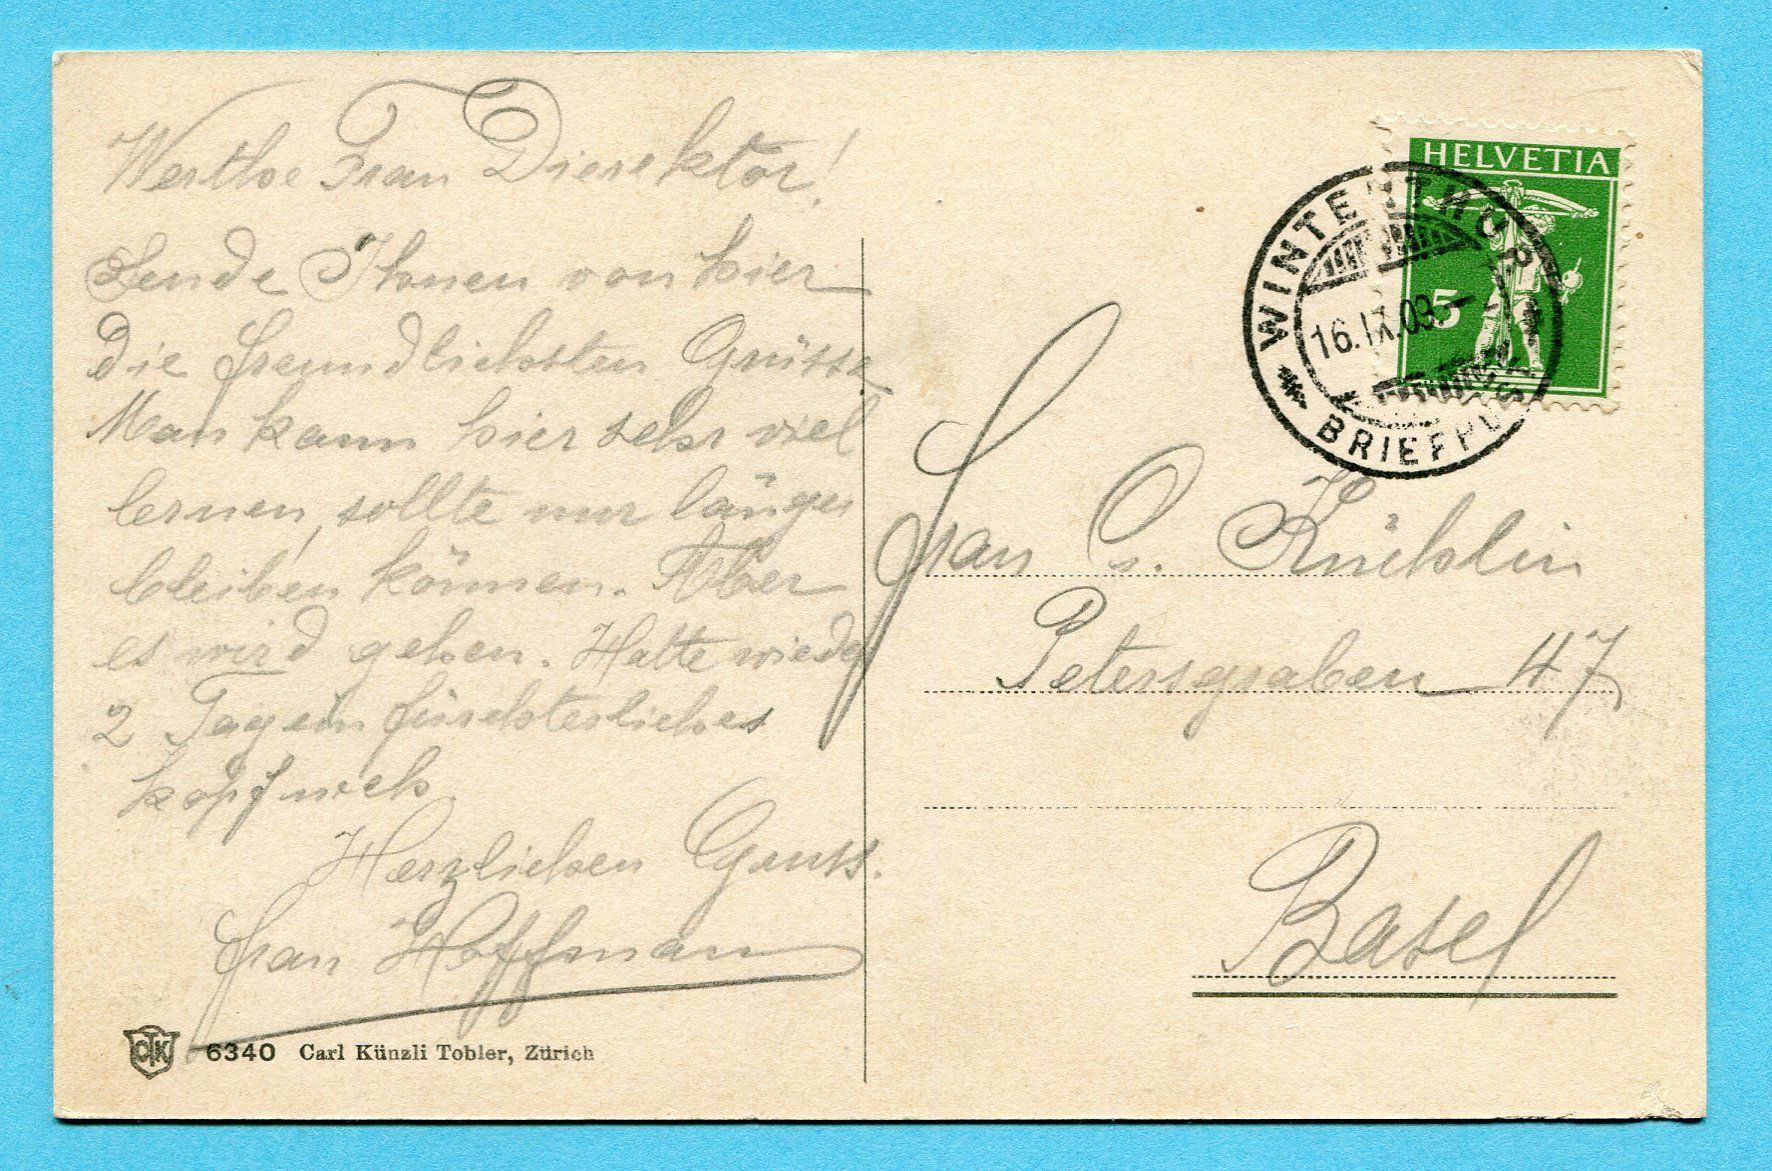 Werthe Frau Dierektor!
Sende Ihnen von hier
die freundlichsten Grüsse
Man kann hier sehr viel
lernen, sollte nur länger
bleiben können. Aber
es wird gehen. Hatte wieder
2 Tag ein fürchterliches
Kopfweh.
Herzlichen Gruss.
Frau Hoffman
CTK 6340 Carl Künzli Tobler, Zürich
HELVETIA
5
WINTERTHUR
16.IX.09
BRIEFPOST
Frau O. Küchlin
Petersgraben 47
Basel